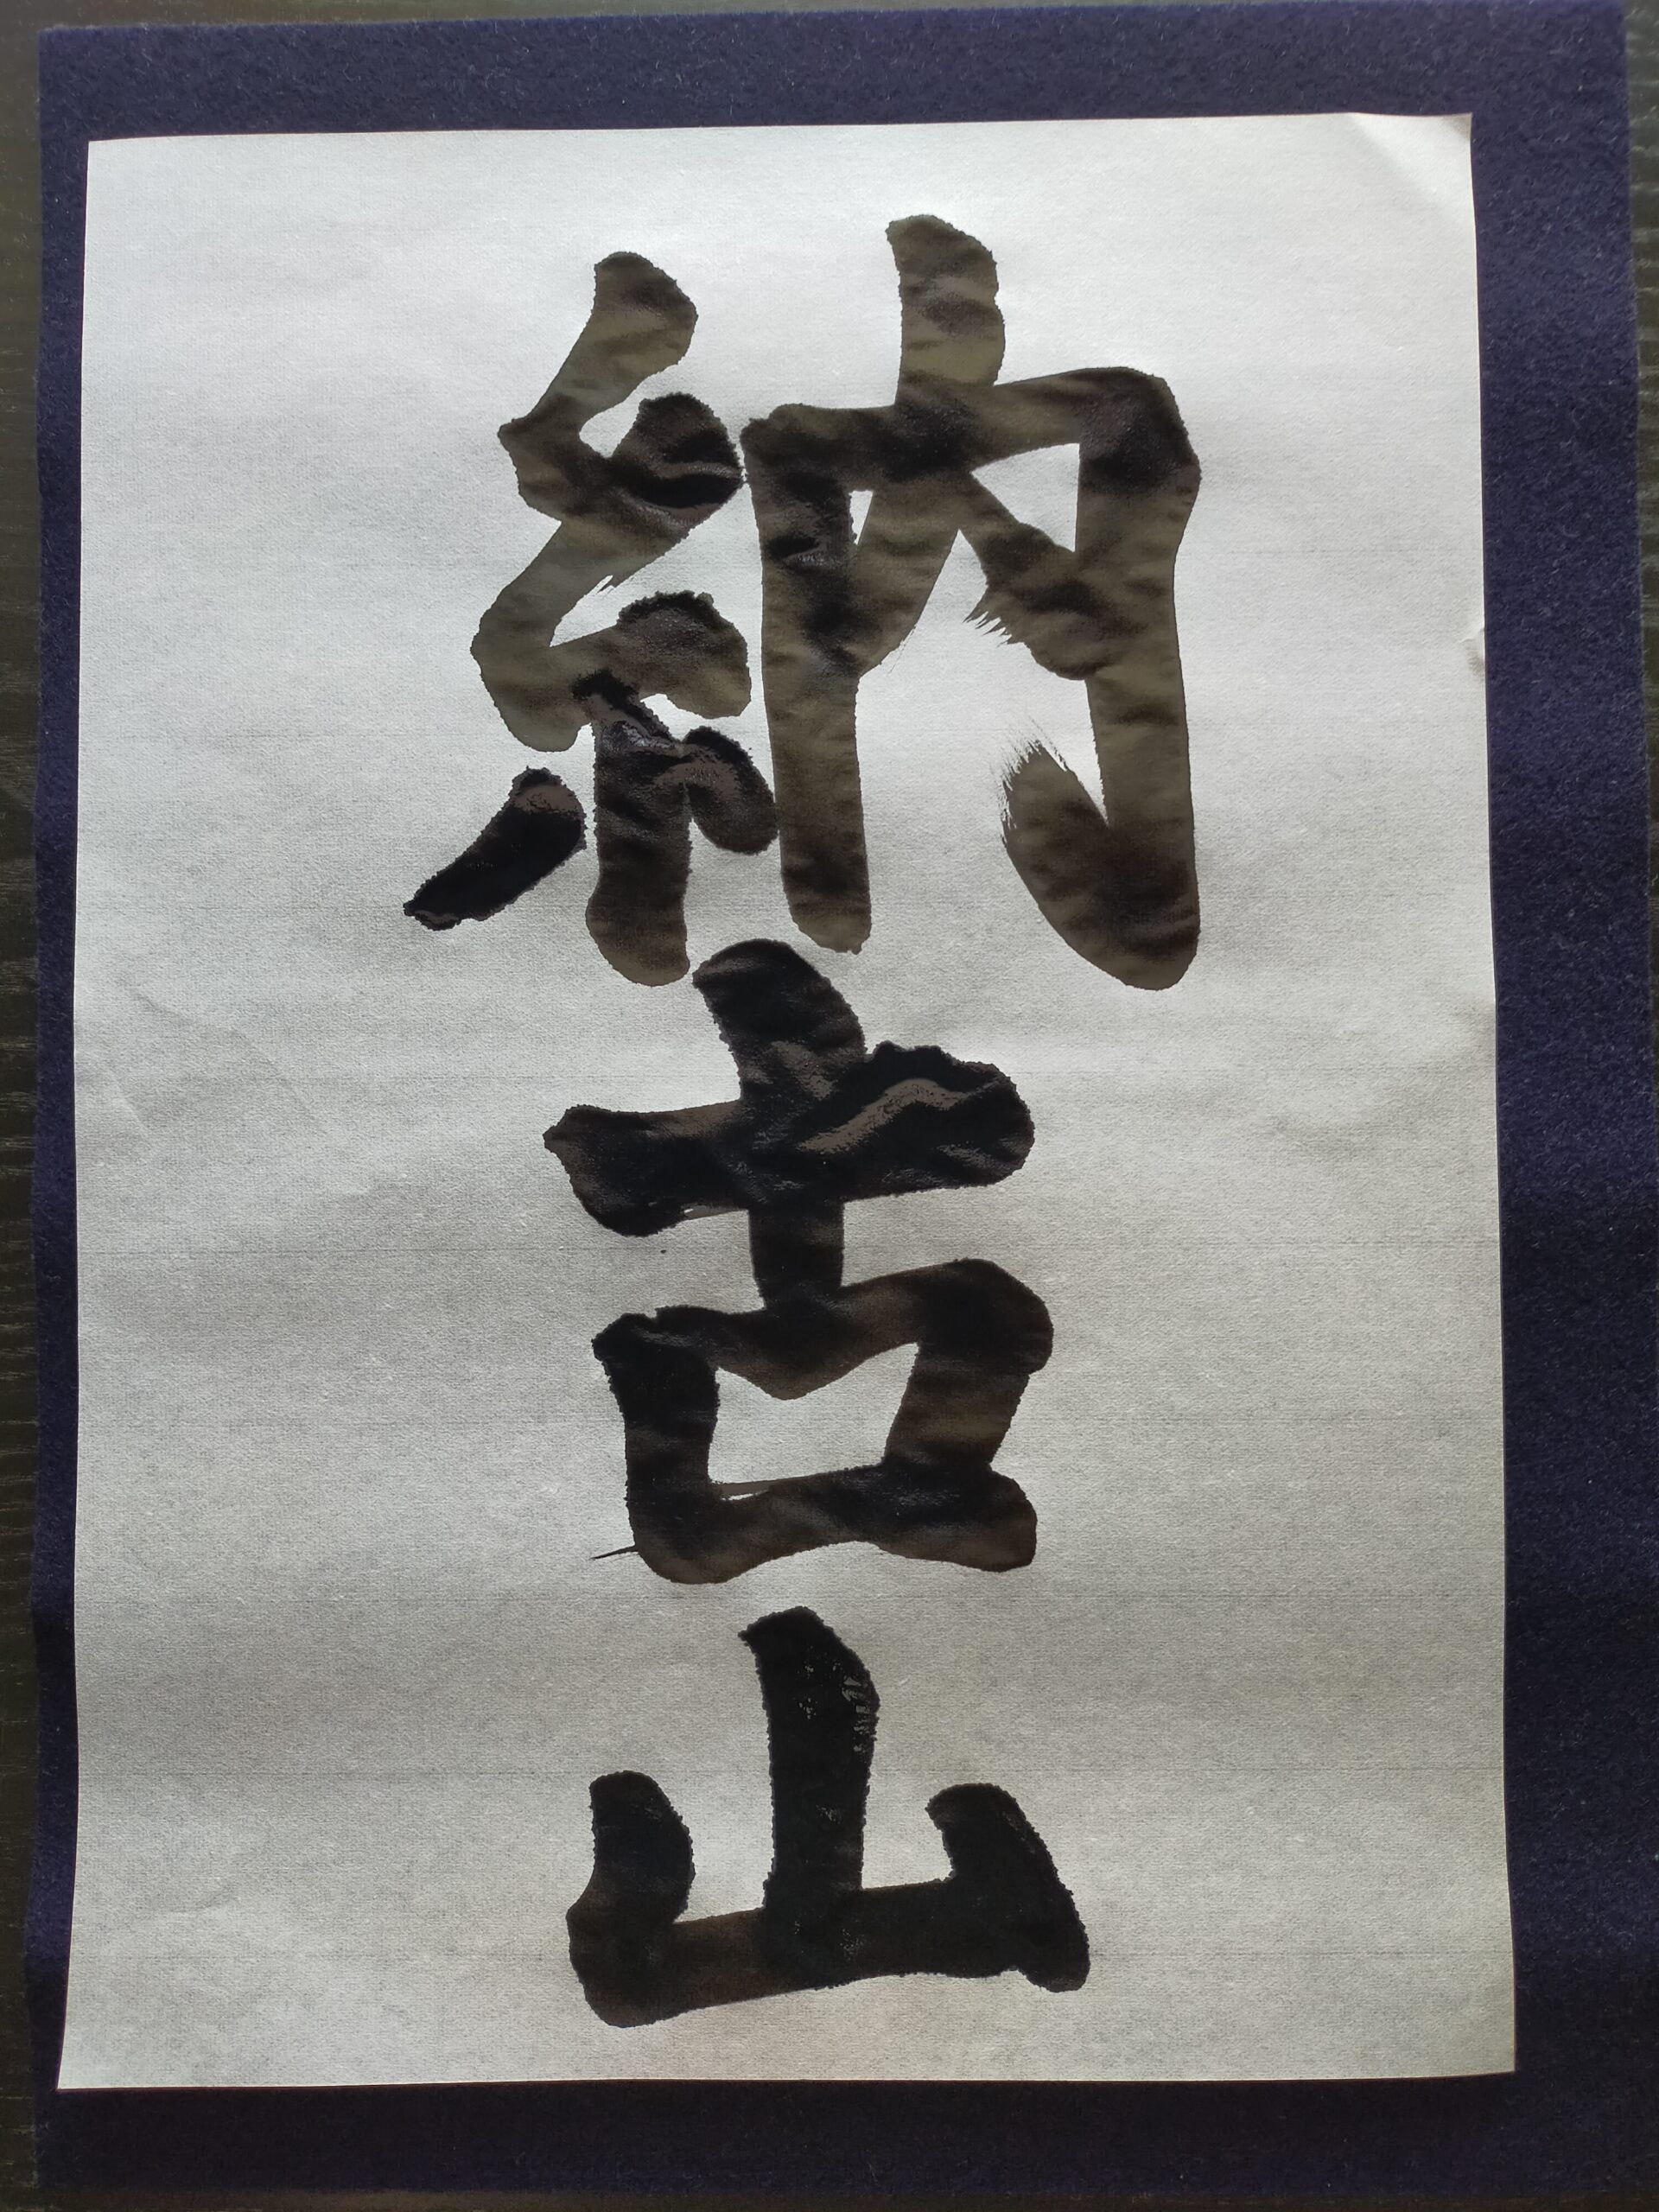 納古山